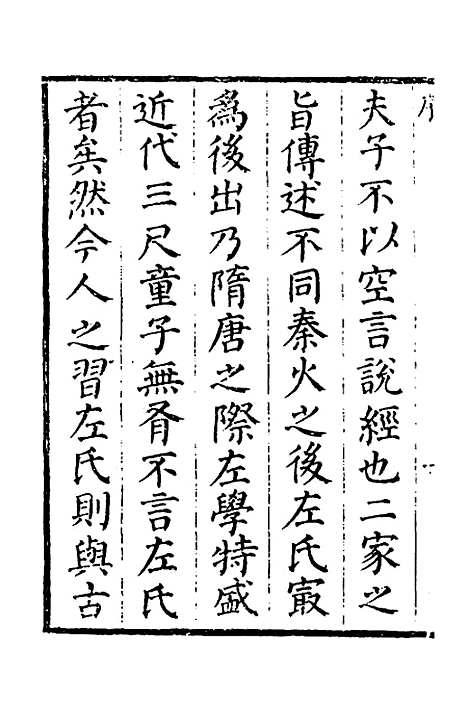 夫子不以空言說經也二家之
旨傳述不同秦火之後左氏㝡
爲後出乃隋唐之際左學特盛
近代三尺童子無胥不言左氏
者矣然今人之習左氏則與古